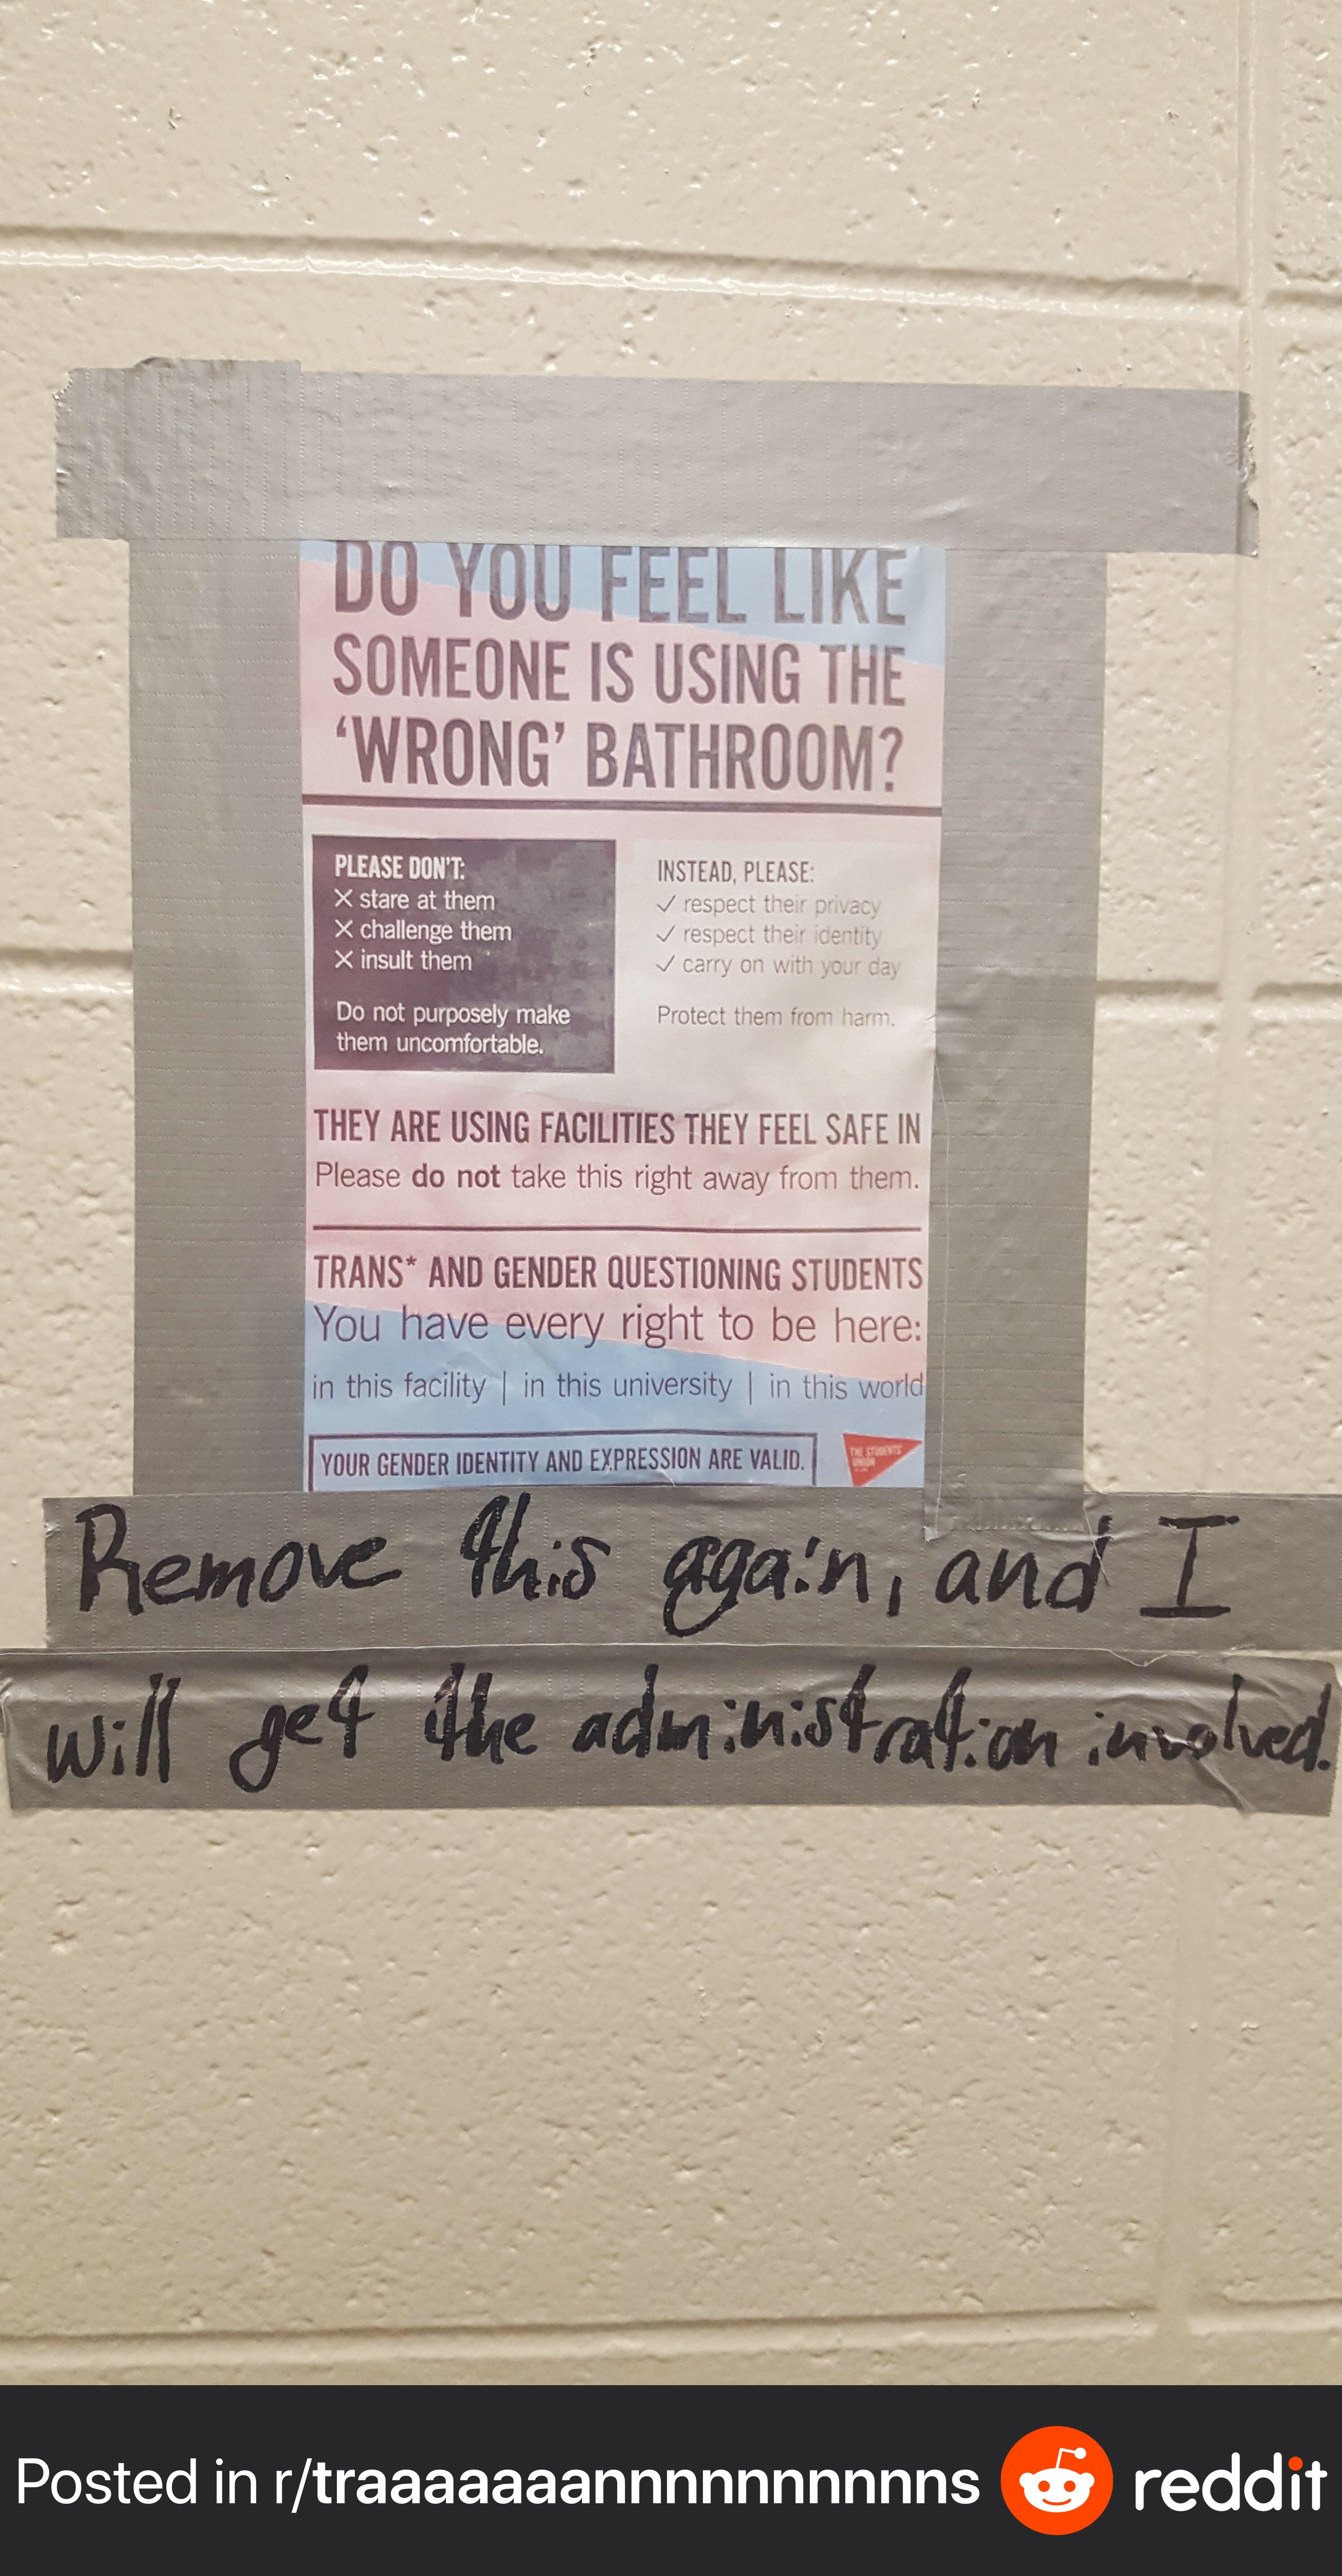 DO YOU FEEL LIKE
SOMEONE IS USING THE
‘WRONG’ BATHROOM?
PLEASE DON'T:
X stare at them
X challenge them
X insult them
Do not purposely make
them uncomfortable.
INSTEAD, PLEASE:
✓ respect their privacy
✓ respect their identity
✓ carry on with your day
Protect them from harm.
THEY ARE USING FACILITIES THEY FEEL SAFE IN
Please do not take this right away from them.
TRANS* AND GENDER QUESTIONING STUDENTS
You have every right to be here:
in this facility | in this university | in this world
YOUR GENDER IDENTITY AND EXPRESSION ARE VALID.
THE STUDENTS'
UNION
Remove this again, and I
will get the administration involved.
Posted in r/traaaaaaannnnnnnnnns reddit